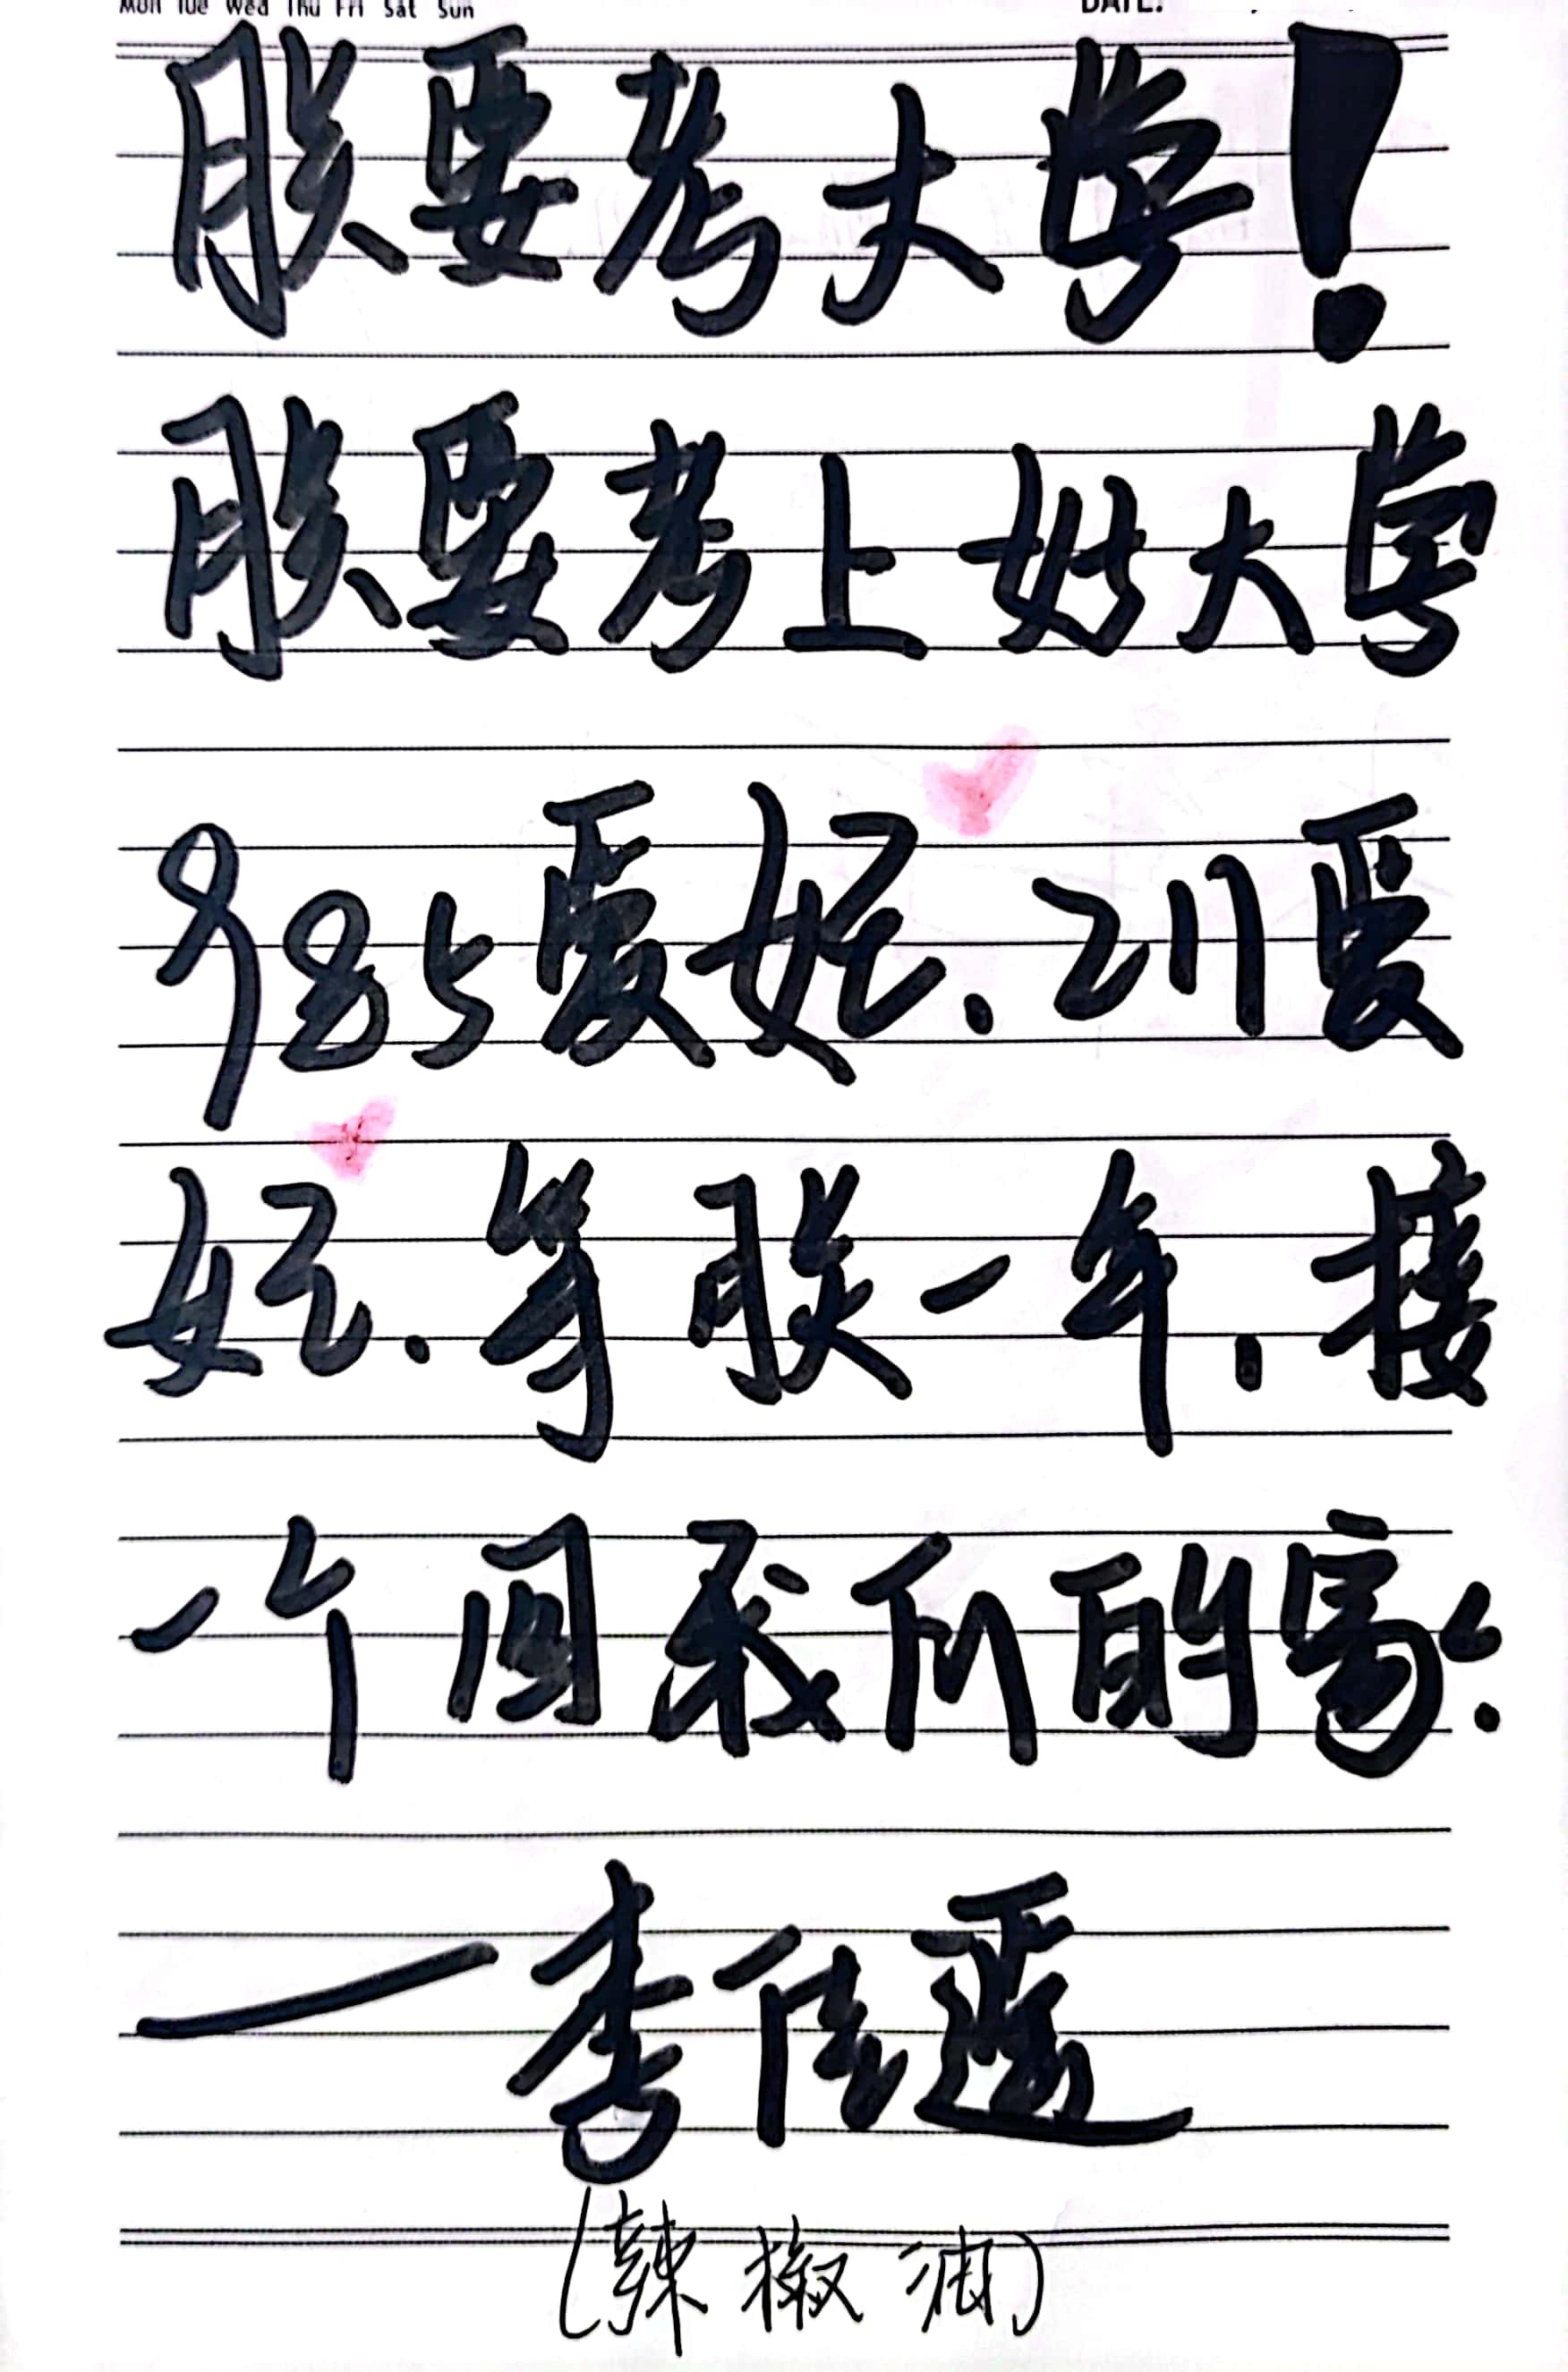 Mon Tue Wed Thu Fri Sat Sun DATE:
朕要考大学！
朕要考上好大学
985爱妃、211爱
妃、等朕一年、接
一个回我们的家。
——李佳遥
（辣椒油）